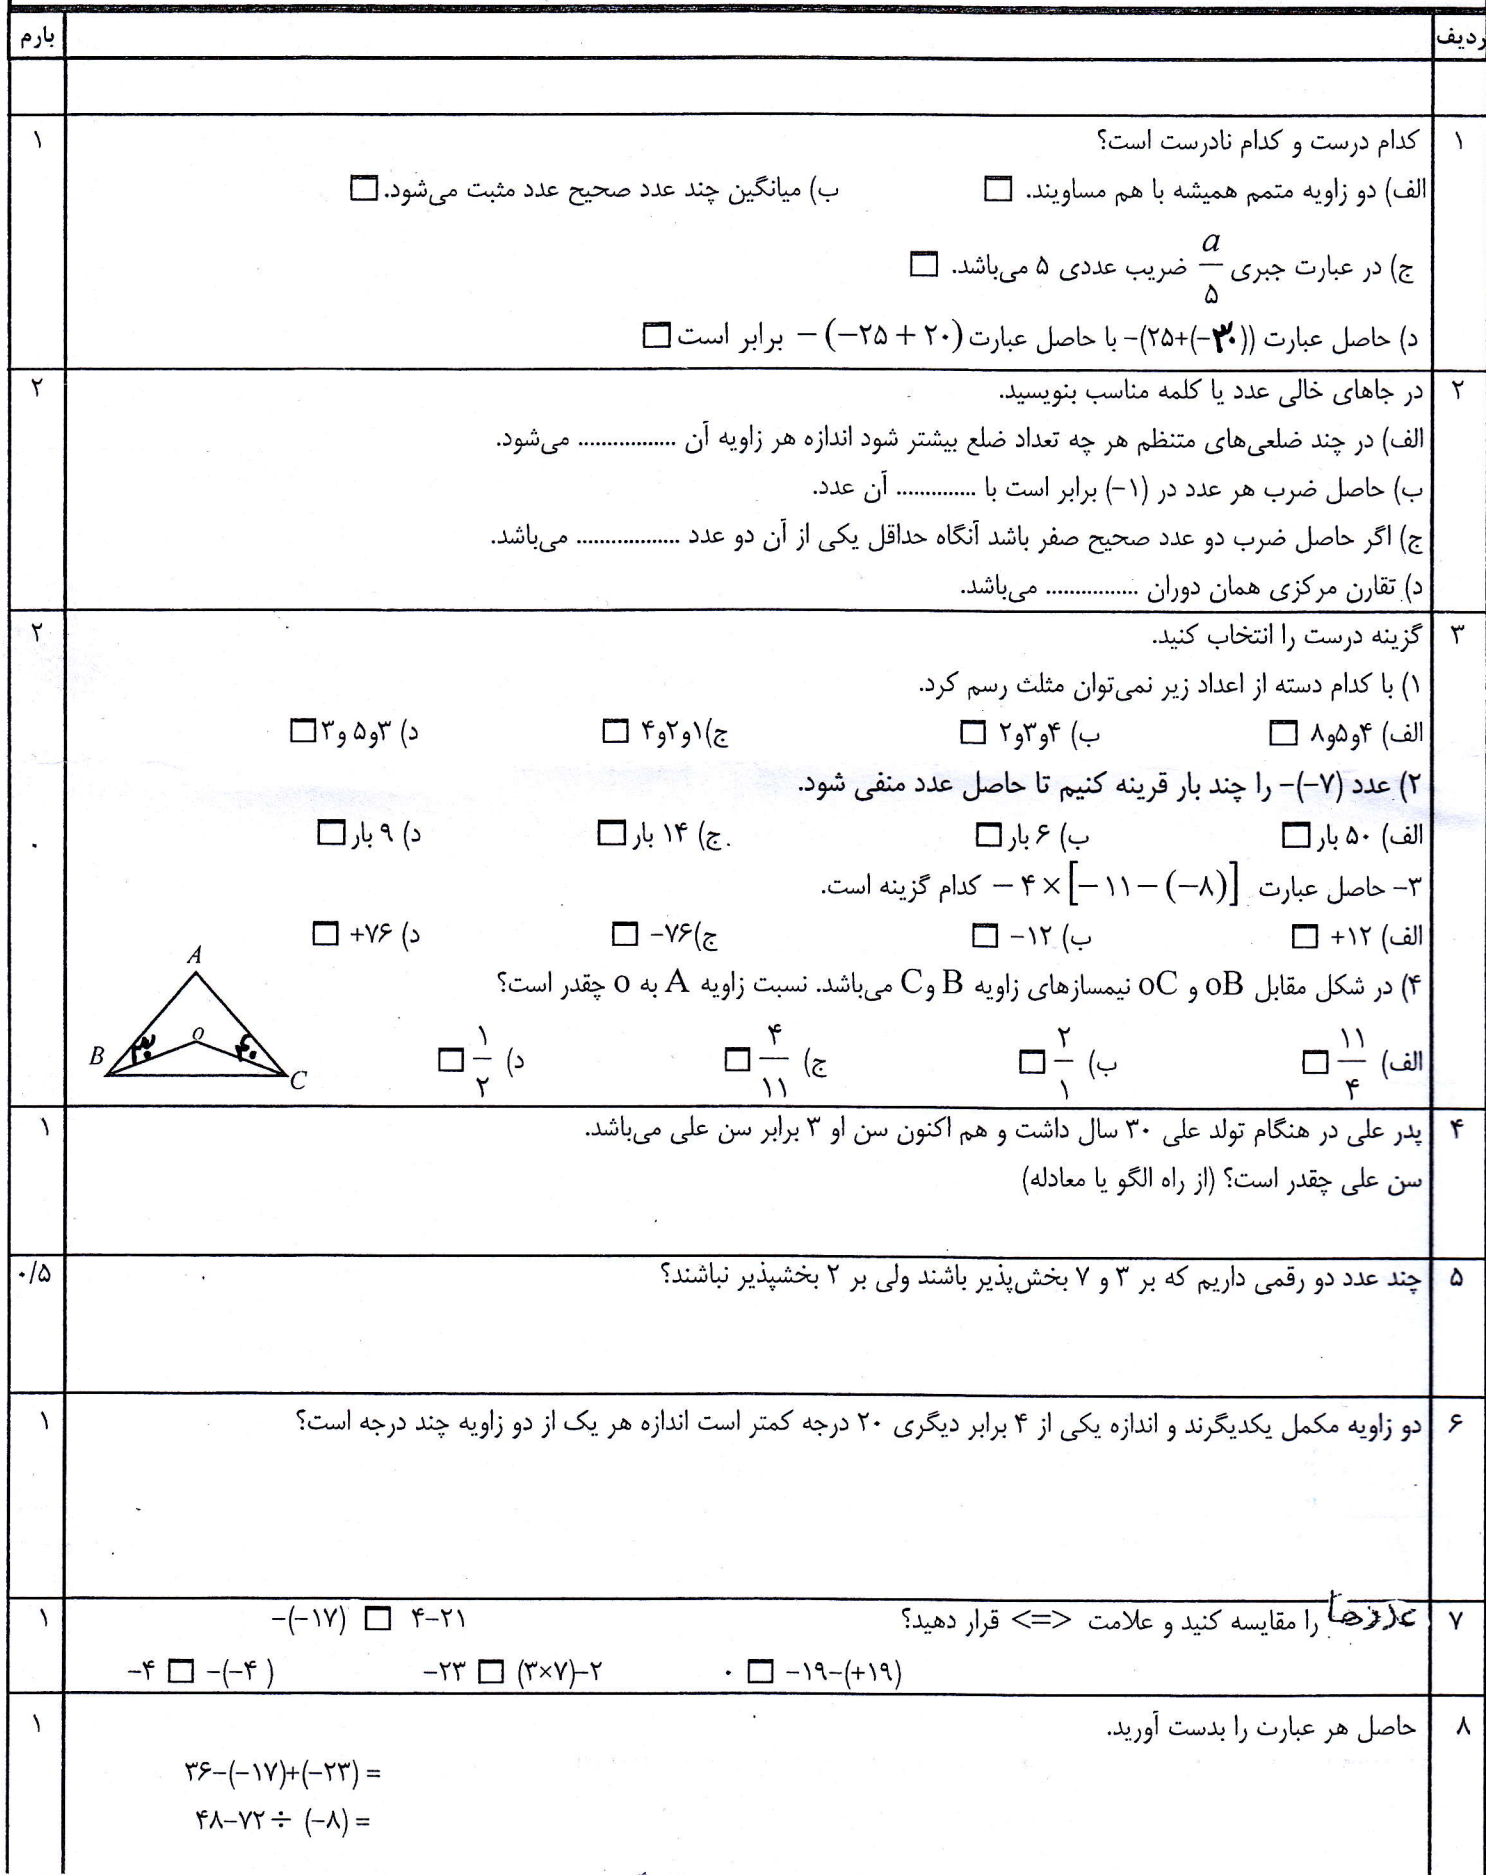 ردیف بارم
۱ کدام درست و کدام نادرست است؟ ۱
الف) دو زاویه متمم همیشه با هم مساویند. □ ب) میانگین چند عدد صحیح عدد مثبت می‌شود. □
ج) در عبارت جبری a/۵ ضریب عددی ۵ می‌باشد. □
د) حاصل عبارت -(۲۵+(-۳۰)) با حاصل عبارت -(-۲۵+۲۰) برابر است □
۲ در جاهای خالی عدد یا کلمه مناسب بنویسید. ۲
الف) در چند ضلعی‌های متنظم هر چه تعداد ضلع بیشتر شود اندازه هر زاویه آن ................. می‌شود.
ب) حاصل ضرب هر عدد در (۱-) برابر است با .............. آن عدد.
ج) اگر حاصل ضرب دو عدد صحیح صفر باشد آنگاه حداقل یکی از آن دو عدد .................. می‌باشد.
د) تقارن مرکزی همان دوران ................ می‌باشد.
۳ گزینه درست را انتخاب کنید. ۲
۱) با کدام دسته از اعداد زیر نمی‌توان مثلث رسم کرد.
الف) ۴و۵و۸ □ ب) ۴و۳و۲ □ ج)۱و۲و۴ □ د) ۳و۵ و۳ □
۲) عدد (۷-)- را چند بار قرینه کنیم تا حاصل عدد منفی شود.
الف) ۵۰ بار □ ب) ۶ بار □ ج) ۱۴ بار □ د) ۹ بار □
۳- حاصل عبارت -۴×[-۱۱-(-۸)] کدام گزینه است.
الف) ۱۲+ □ ب) ۱۲- □ ج)۷۶- □ د) ۷۶+ □
۴) در شکل مقابل oB و oC نیمسازهای زاویه B وC می‌باشد. نسبت زاویه A به o چقدر است؟
الف) ۱۱/۴ □ ب) ۲/۱ □ ج) ۴/۱۱ □ د) ۱/۲ □
A
o
B ۳۰ ۴۰ C
۴ پدر علی در هنگام تولد علی ۳۰ سال داشت و هم اکنون سن او ۳ برابر سن علی می‌باشد. ۱
سن علی چقدر است؟ (از راه الگو یا معادله)
۵ چند عدد دو رقمی داریم که بر ۳ و ۷ بخش‌پذیر باشند ولی بر ۲ بخشپذیر نباشند؟ ۰/۵
۶ دو زاویه مکمل یکدیگرند و اندازه یکی از ۴ برابر دیگری ۲۰ درجه کمتر است اندازه هر یک از دو زاویه چند درجه است؟ ۱
۷ عددها را مقایسه کنید و علامت <=> قرار دهید؟ -(-۱۷) □ ۴-۲۱ ۱
۰ □ -۱۹-(+۱۹) -۲۳ □ (۳×۷)-۲ -۴ □ -(-۴)
۸ حاصل هر عبارت را بدست آورید. ۱
۳۶-(-۱۷)+(-۲۳) =
۴۸-۷۲ ÷ (-۸) =